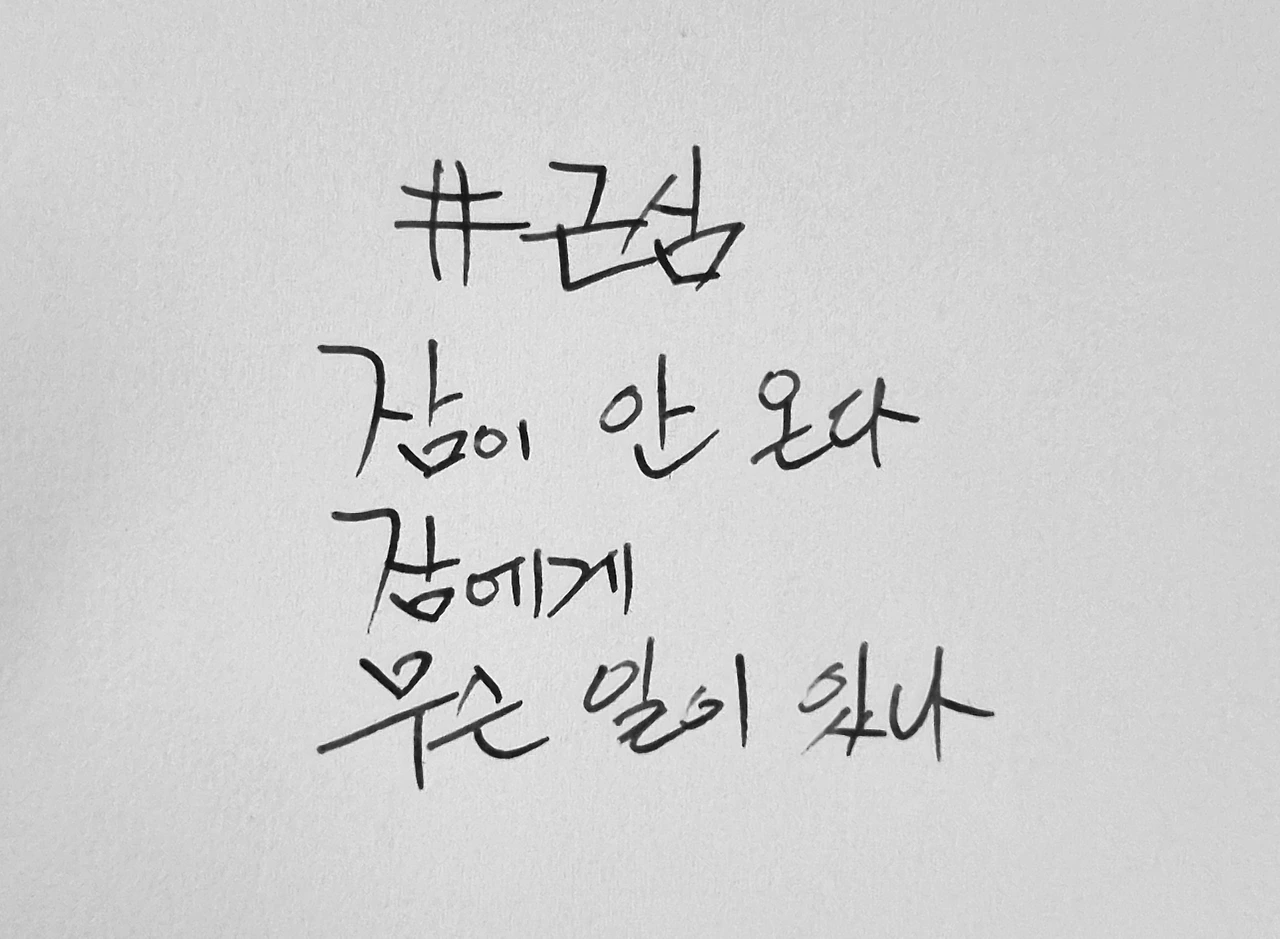 #근심
잠이 안 온다
잠에게
무슨 일이 있나